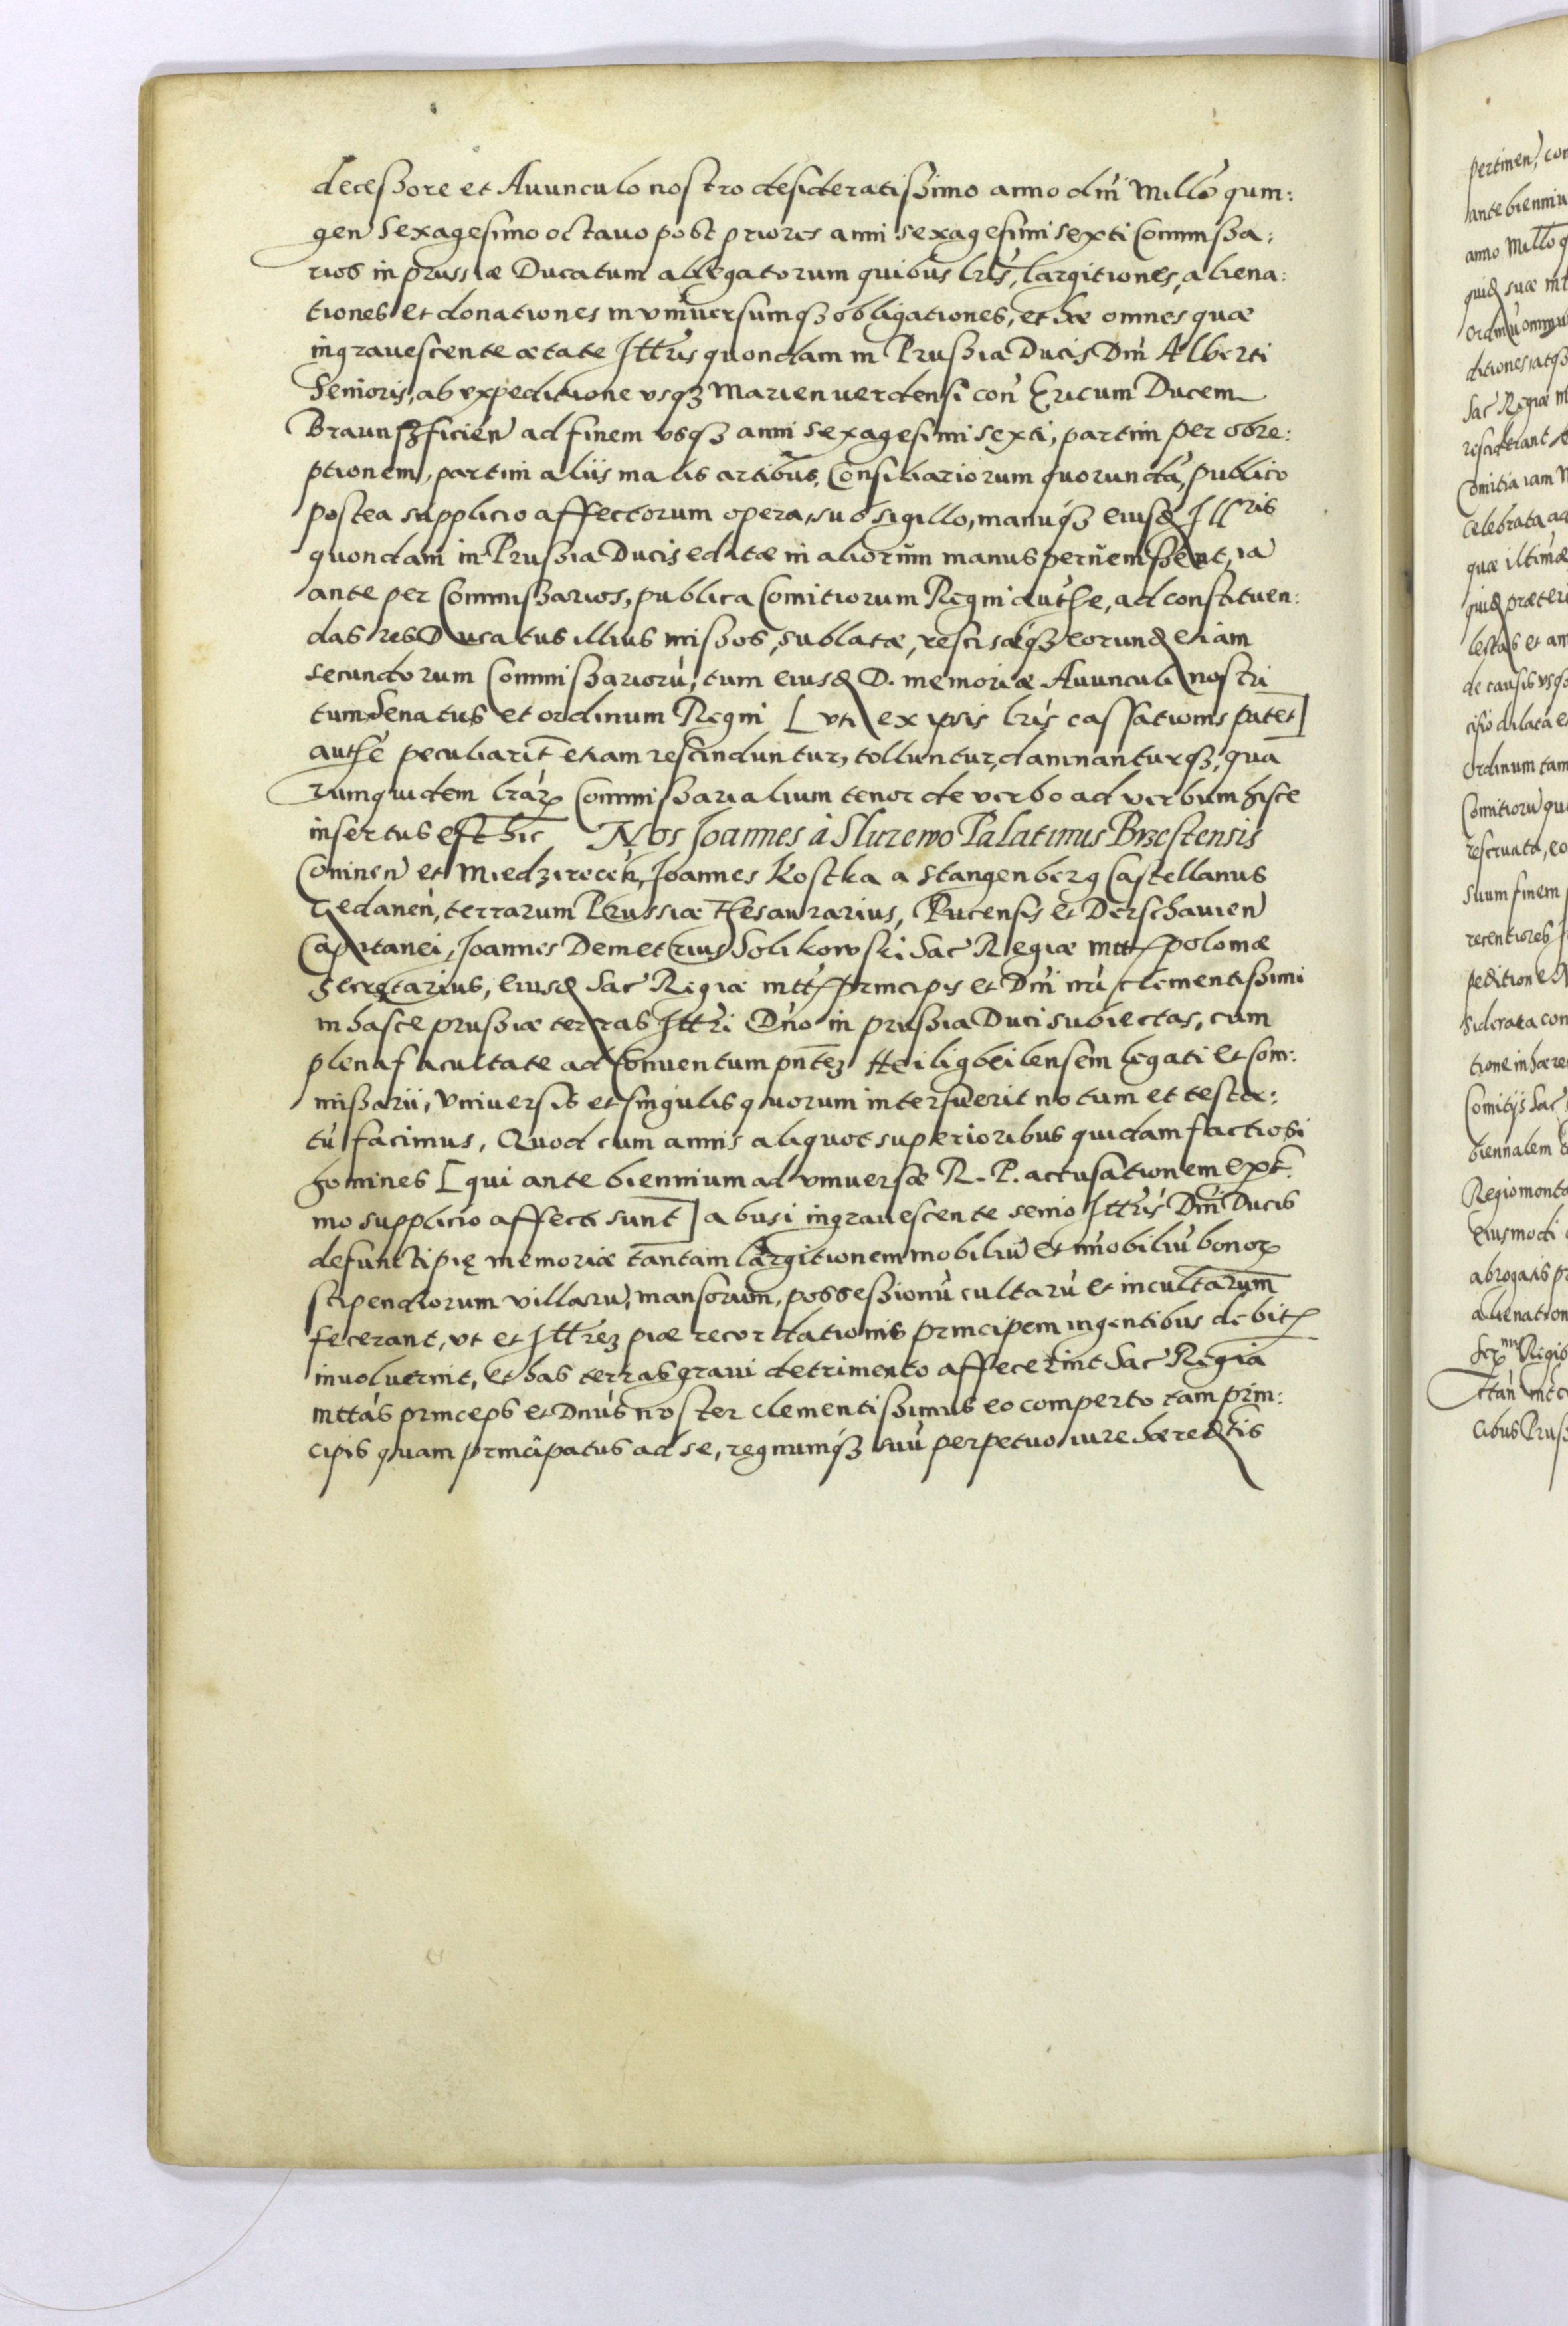 decessore et Auunculo nostro desideratissimo anno dñi Millõ quin:
gen Sexagesimo octauo post priores anni sexagesimi sexti Commissa:
rios in prussiæ Ducatum ablegatorum quibus lrĩs, largitiones, aliena:
tiones et donationes in vniuersumqꝫ obligationes, et hæ omnes quæ
ingrauescente ætate Illr̃is quondam in Prussia Ducis Dñi Alberti
Senioris, ab expeditione vsqꝫ Marienuerdensi con Ericum Ducem
Braunschficien ad finem vsqꝫ anni sexagesimi sexti, partim per obre:
ptionem, partim aliis malis artibus, Consiliariorum quorundã, publico
postea supplicio affectorum opera, sub sigillo, manuqꝫ eiusd Illris
quondam in Prussia Ducis editæ in aliorum manus peruenissent, iã
ante per Commissarios, publica Comitiorum Regni authe, ad constituen:
das res Ducatus illius missos, sublatæ, rescisæqꝫ eorund etiam
secundorum Commissariorũ, tum eiusd D. memoriæ Auunculi nostri
tum Senatus et ordinum Regni [ vti ex ipsis lrĩs cassationis patet ]
authẽ peculiarit̃ etiam rescinduntur, tolluntur, damnanturqꝫ, qua
rumquidem lrãrꝝ Commissarialium tenor de verbo ad verbum hisce
insertus est hic Nos Joannes à Sluzewo Palatinus Brzestensis
Coninen et Miedzirecen, Joannes Kostka a Stangenberg Castellanus
Gedanen, terrarum Prussiæ Thesaurarius, Pucensis et Derschauien
Capitanei, Joannes Demetrius Solikowski Sac Regiæ mttꝭ poloniæ
Secretarius, eiusd Sac Regiæ mttꝭ principis et Dñi nrĩ clementissimi
in hasce prussiæ terras Illrĩ Dño in prussia Duci subiectas, cum
plena facultate ad Conuentum pñtꝫ Heiligbeilensem legati et Com:
missarii, Vniuersis et singulis quorum interfuerit notum et testa:
tũ facimus, Quod cum annis aliquot superioribus quidam factiosi
homines [ qui ante biennium ad vniuersæ R. P. accusationem extr̃:
mo supplicio affecti sunt ] abusi ingrauescente senio Illrĩs Dñi Ducis
defuncti pię memoriæ tantam largitionem mobiliũ et im̃obiliũ bonorꝝ
stipendiorum villarũ, mansorum, possessionũ cultarũ et incultarum
fecerant, vt et Illrẽꝫ piæ recordationis principem ingentibus debitꝭ
inuoluerint, et has terras graui detrimento affecerint Sac Regia
mttãs princeps et Dñus noster clementissimus eo comperto tam prin:
cipis quam principatus ad se, regnumqꝫ suũ perpetuo iure hæreditis